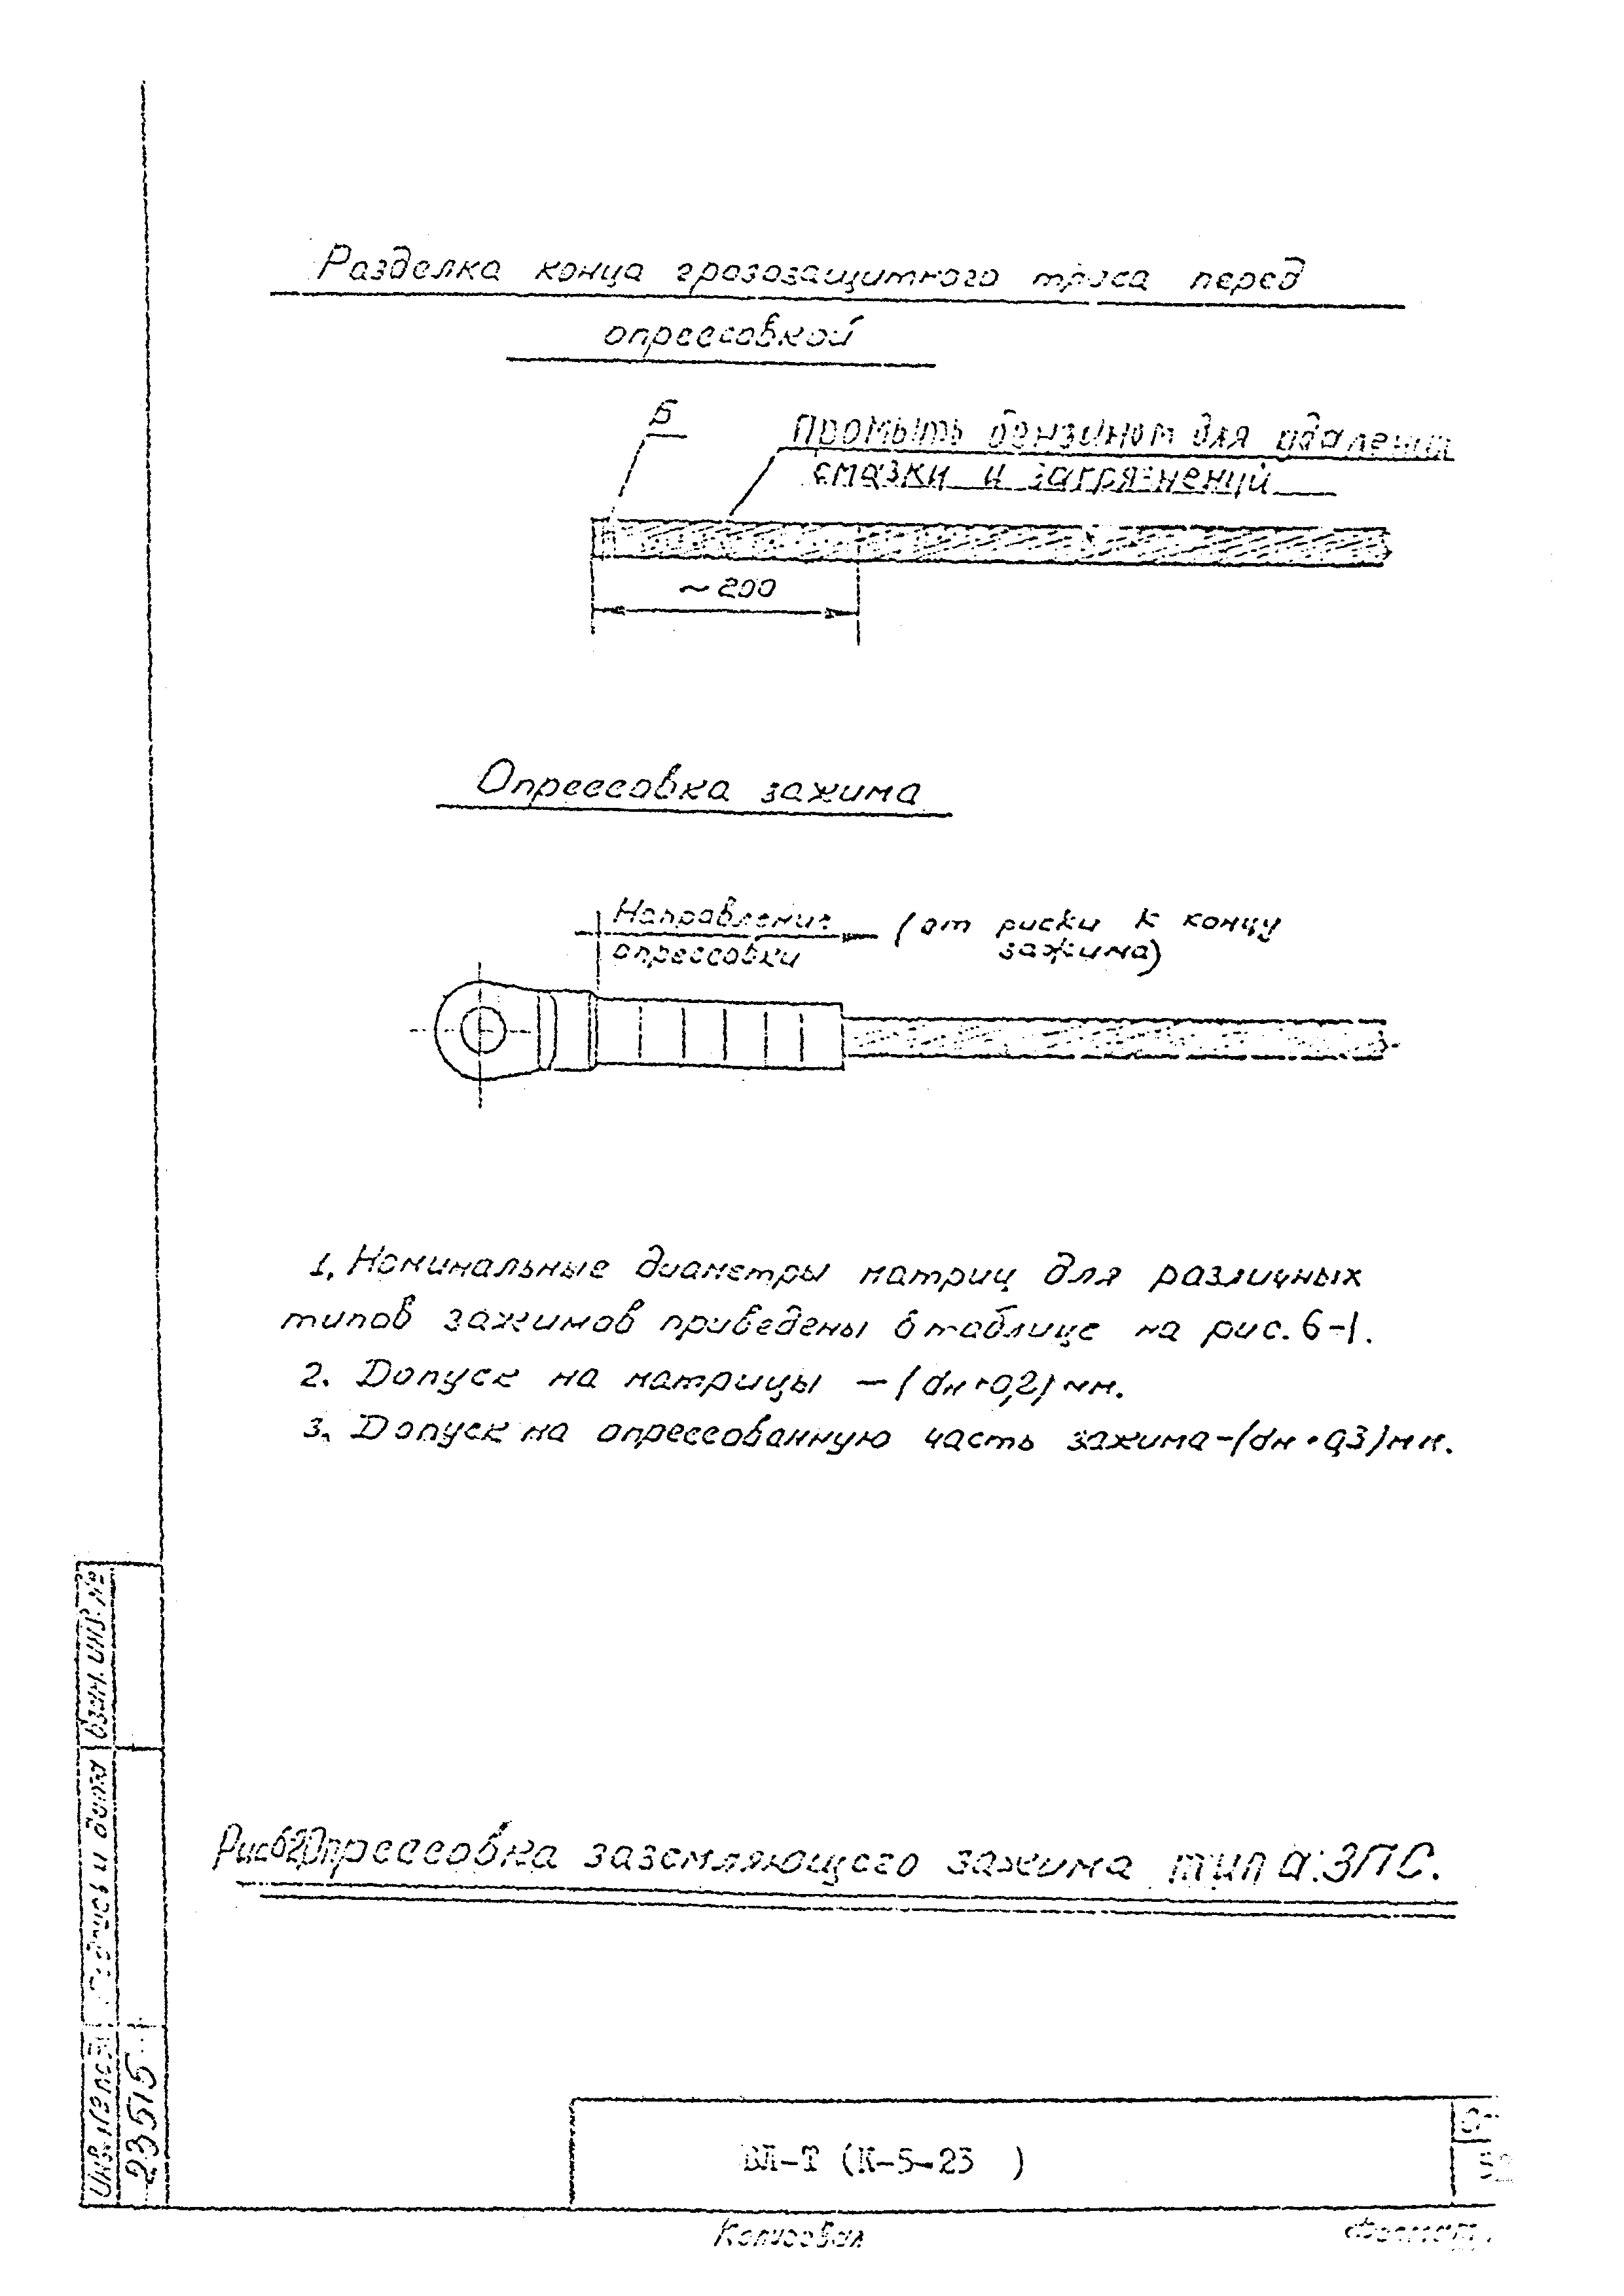 Разделка конца грозозащитного троса перед
опрессовкой
Б
Промыть бензином для удаления
смазки и загрязнений
~200
Опрессовка зажима
Направление (от риски к концу
опрессовки зажима)
1. Номинальные диаметры матриц для различных
типов зажимов приведены в таблице на рис. 6-1.
2. Допуск на матрицы – (dн+0,2) мм.
3. Допуск на опрессованную часть зажима – (dн+0,3) мм.
Рис 6-2 Опрессовка заземляющего зажима типа ЗПС.
Взам. инв. №
Подпись и дата
Инв. № подл
23515
ВЛ-Т (К-5-23 )
Копировал
Формат